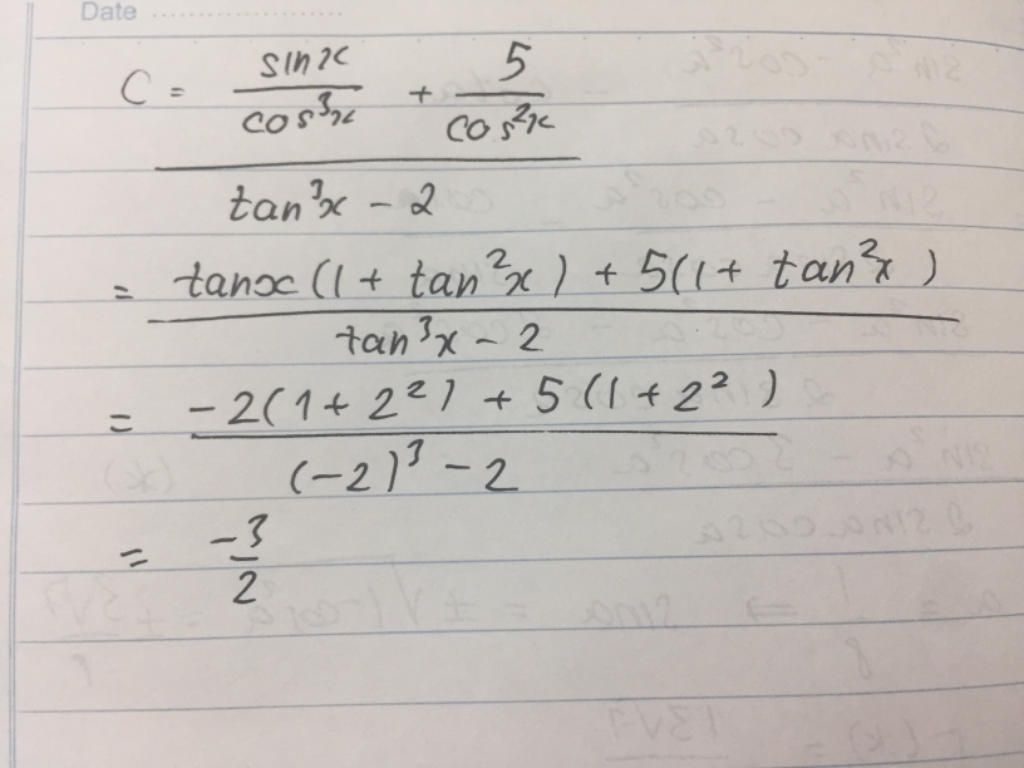 Date
C = sinx/cos³x + 5/cos²x
tan³x - 2
= tanx(1 + tan²x) + 5(1 + tan²x)
tan³x - 2
= -2(1 + 2²) + 5(1 + 2²)
(-2)³ - 2
= -3/2